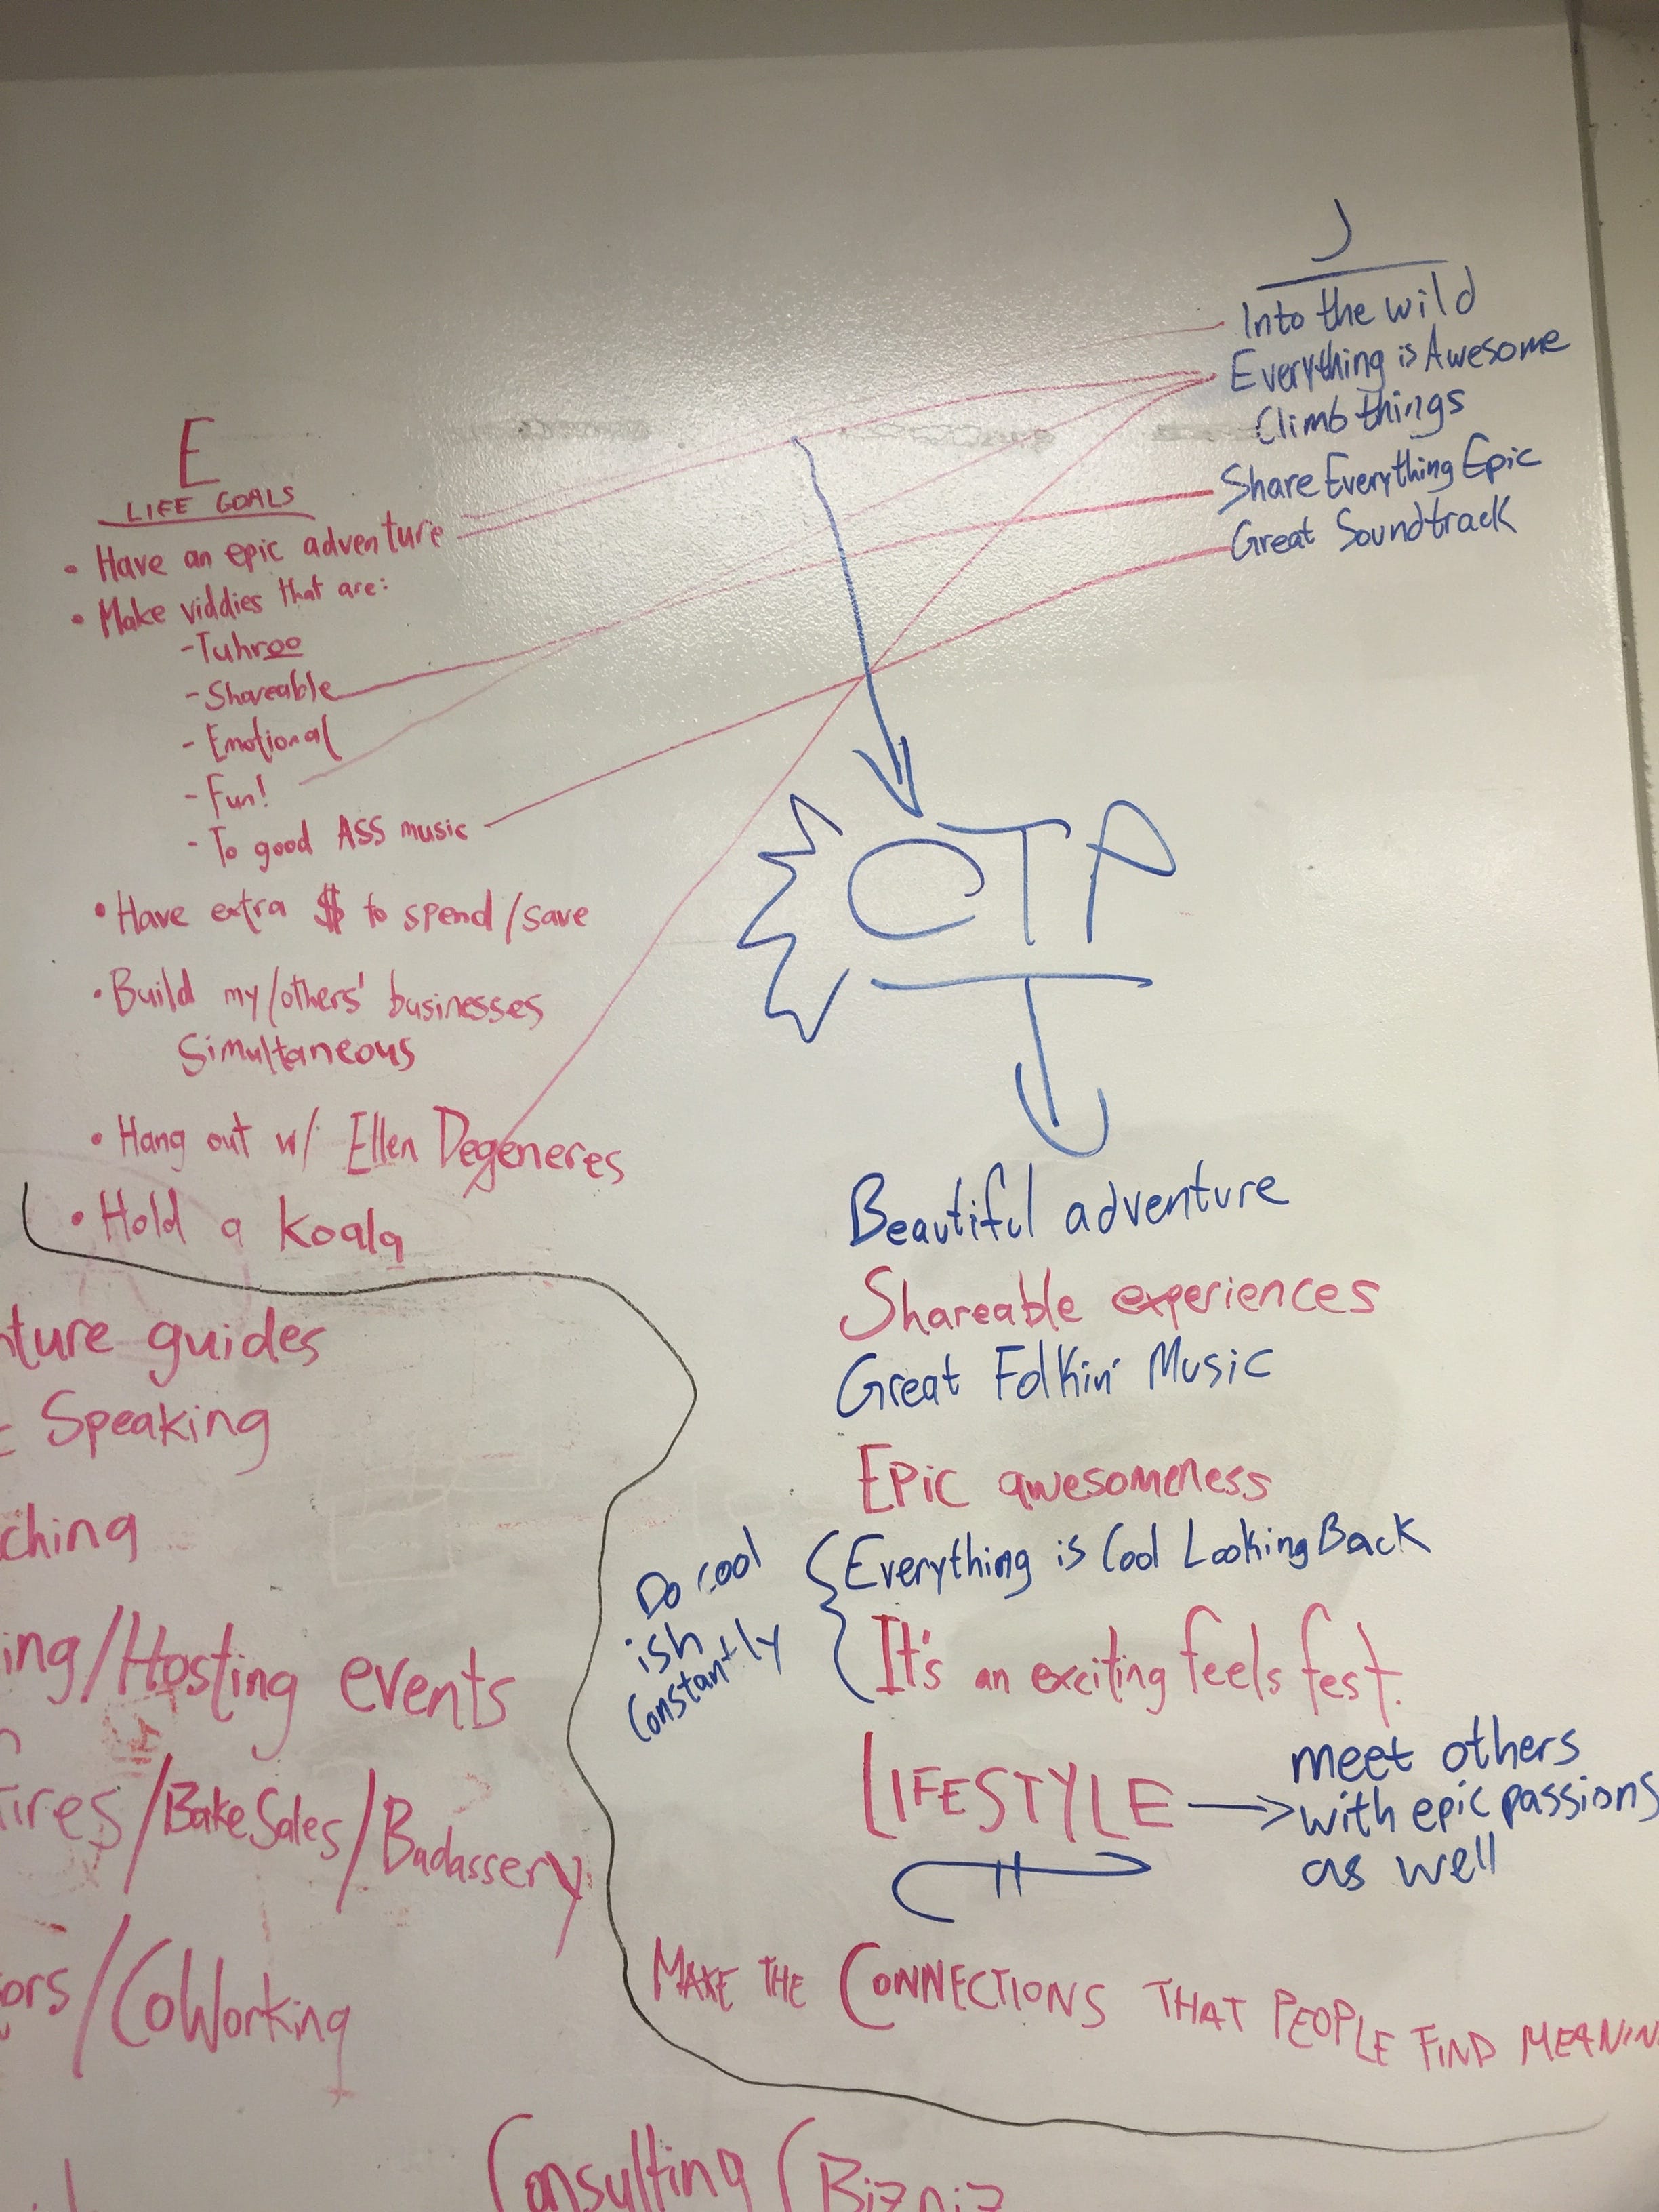 J
Into the wild
Everything is Awesome
Climb things
Share Everything Epic
Great Soundtrack
E
LIFE GOALS
• Have an epic adventure
• Make viddies that are:
- Tuhroo
- Shareable
- Emotional
- Fun!
- To good ASS music
• Have extra $ to spend/save
• Build my/others' businesses
Simultaneous
• Hang out w/ Ellen Degeneres
• Hold a koala
CTP
Beautiful adventure
Shareable experiences
Great Folkin' Music
Epic awesomeness
Everything is Cool Looking Back
It's an exciting feels fest.
Do cool
ish
Constantly
LIFESTYLE
meet others
with epic passions
as well
MAKE THE CONNECTIONS THAT PEOPLE FIND MEANIN
ture guides
Speaking
ching
ing/Hosting events
ires/Bake Sales/Badassery
ors/CoWorking
Consulting/Bizniz